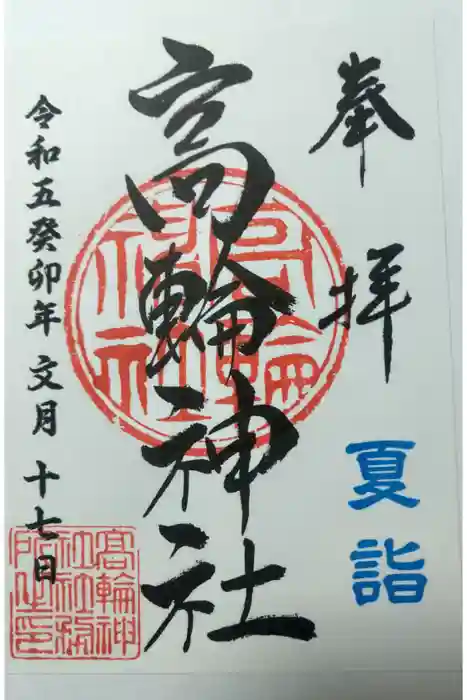 奉拝
夏詣
高輪神社
高輪神社
令和五癸卯年 文月 十七日
高輪神社社務所之印